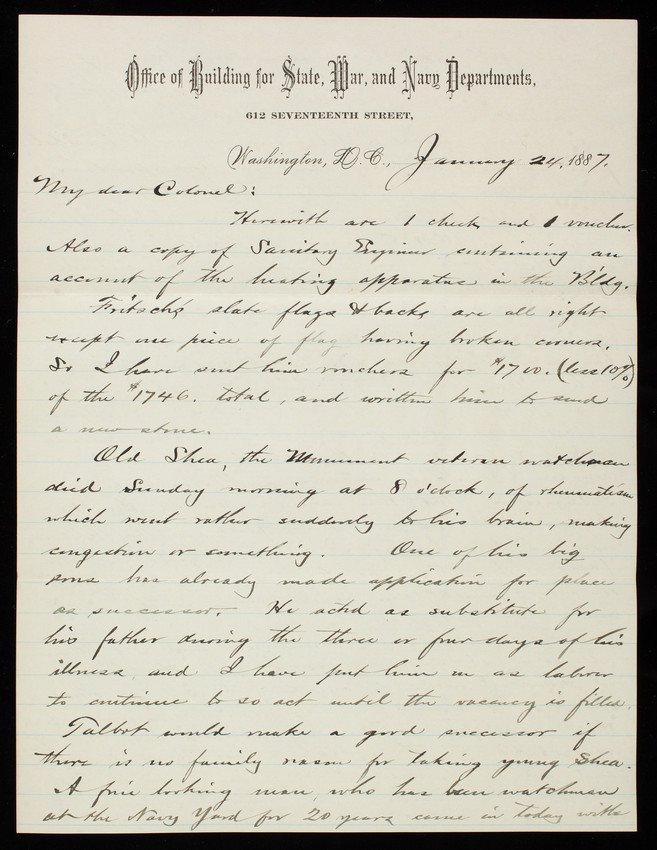 Office of Building for State, War, and Navy Departments,
612 SEVENTEENTH STREET,
Washington, D.C., January 24, 1887.
My dear Colonel:
Herewith are 1 check and 1 voucher.
Also a copy of Sanitary Engineer containing an
account of the heating apparatus in the Bldg.
Fritsch's slate flags & backs are all right
except one piece of flag having broken corners.
So I have sent him vouchers for $1700. (less 10%)
of the $1746. total, and written him to send
a new stone.
Old Shea, the Monument veteran watchman
died Sunday morning at 8 o'clock, of rheumatism
which went rather suddenly to his brain, making
congestion or something. One of his big
sons has already made application for place
as successor. He acted as substitute for
his father during the three or four days of his
illness and I have put him in as laborer
to continue to so act until the vacancy is filled.
Talbot would make a good successor if
there is no family reason for taking young Shea.
A fine looking man who has been watchman
at the Navy Yard for 20 years came in today with